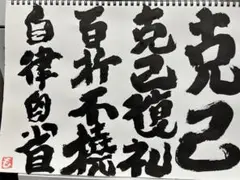 克己
克己復礼
百折不撓
自律自省